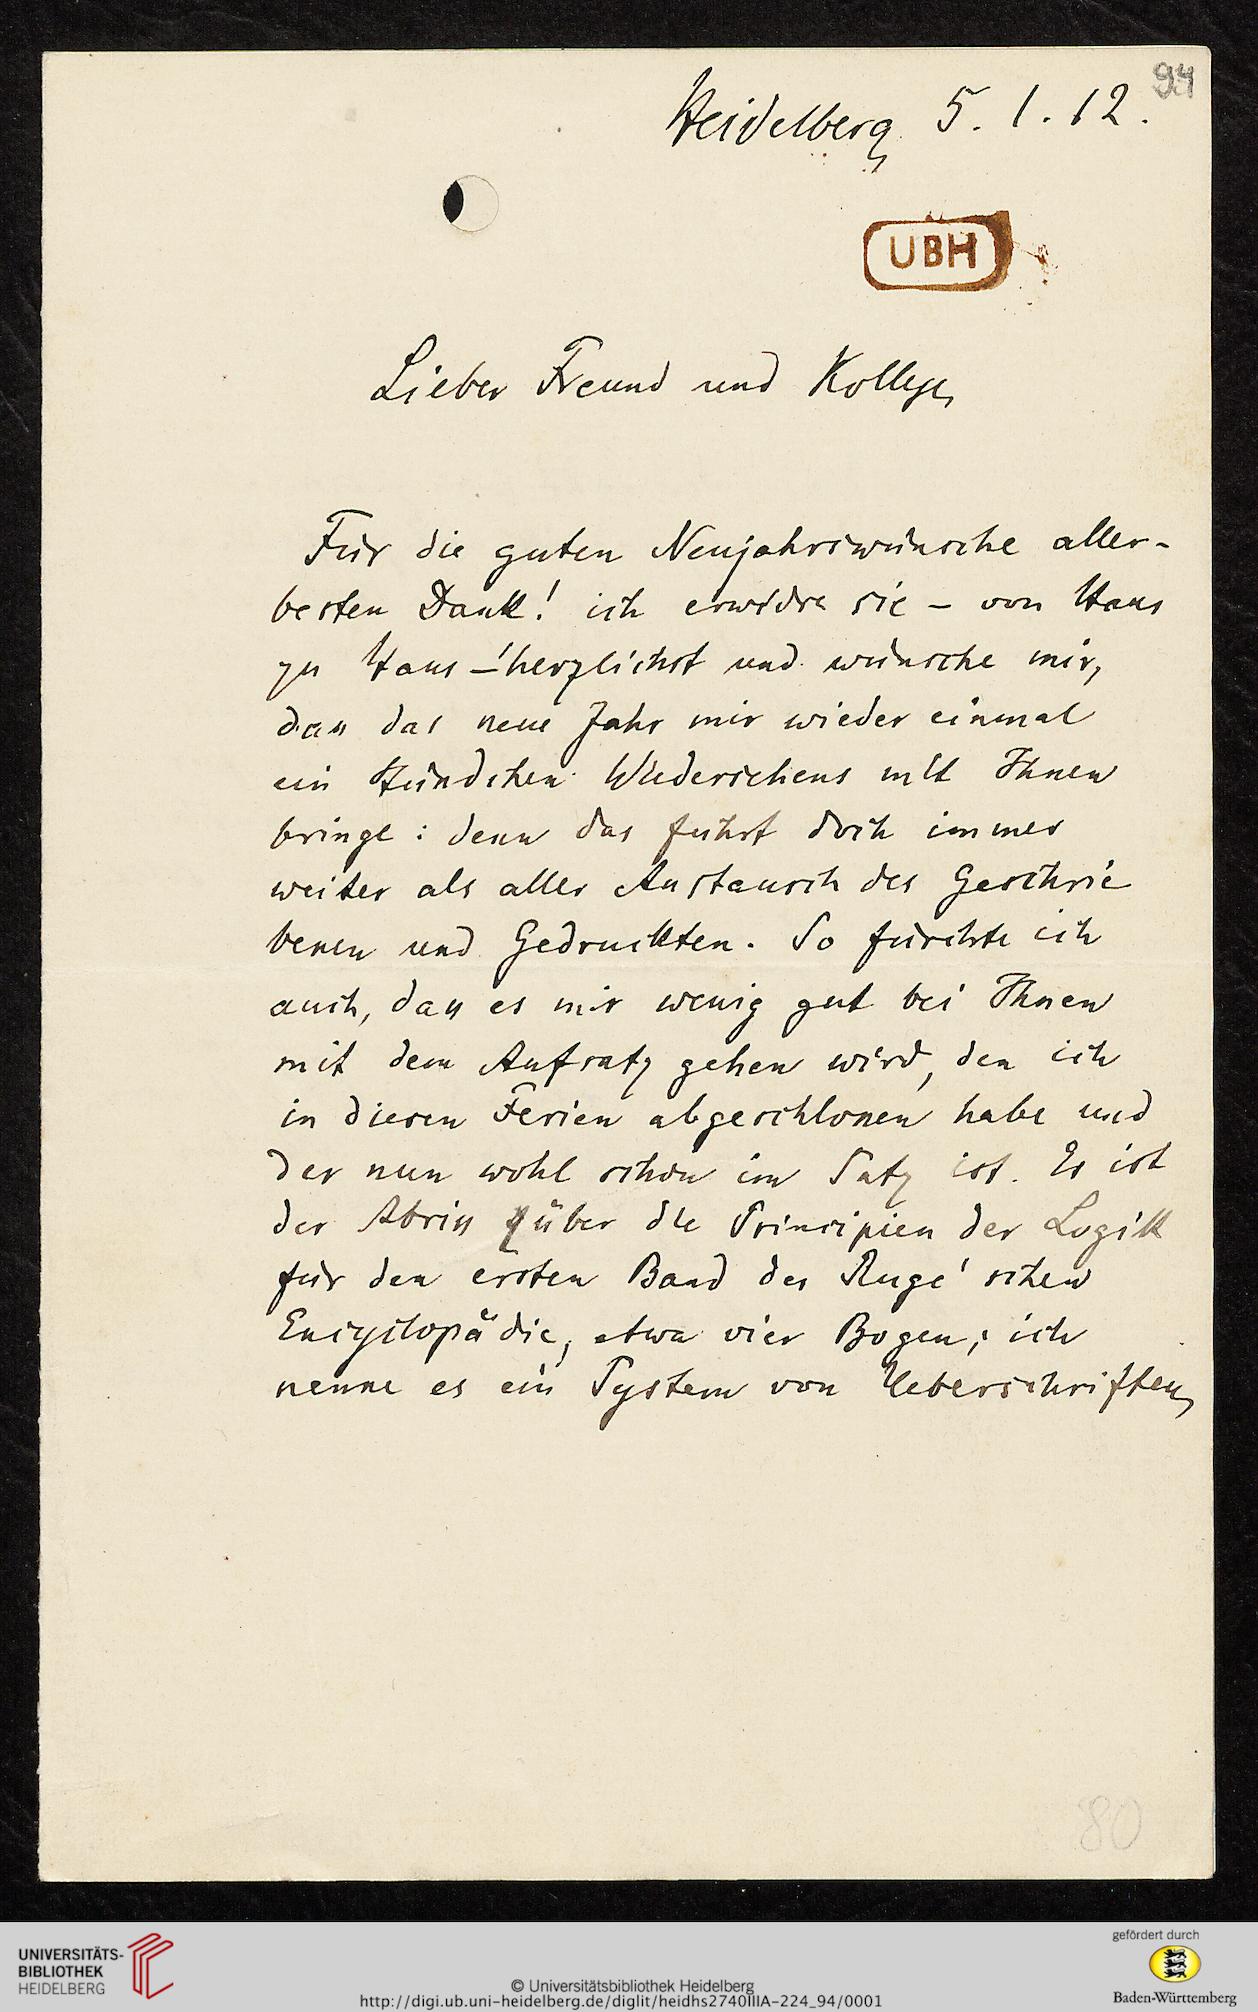 94
Heidelberg 5. 1. 12.
UBH
Lieber Freund und Kollege,
Für die guten Neujahrswünsche aller-
besten Dank! ich erwidre sie – von Haus
zu Haus – herzlichst und wünsche mir,
dass das neue Jahr mir wieder einmal
ein Stündchen Wiedersehens mit Ihnen
bringe: denn das führt doch immer
weiter als aller Austausch des Geschrie
benen und Gedruckten. So fürchte ich
auch, dass es mir wenig gut bei Ihnen
mit dem Aufsatz gehen wird, den ich
in diesen Ferien abgeschlossen habe und
der nun wohl schon im Satz ist. Es ist
der Abriss über die Principien der Logik
für den ersten Band der Ruge'schen
Encyclopädie, etwa vier Bogen; ich
nenne es ein System von Ueberschriften,
80
UNIVERSITÄTS-
BIBLIOTHEK
HEIDELBERG
© Universitätsbibliothek Heidelberg
http://digi.ub.uni-heidelberg.de/diglit/heidhs2740IIIA-224_94/0001
gefördert durch
Baden-Württemberg